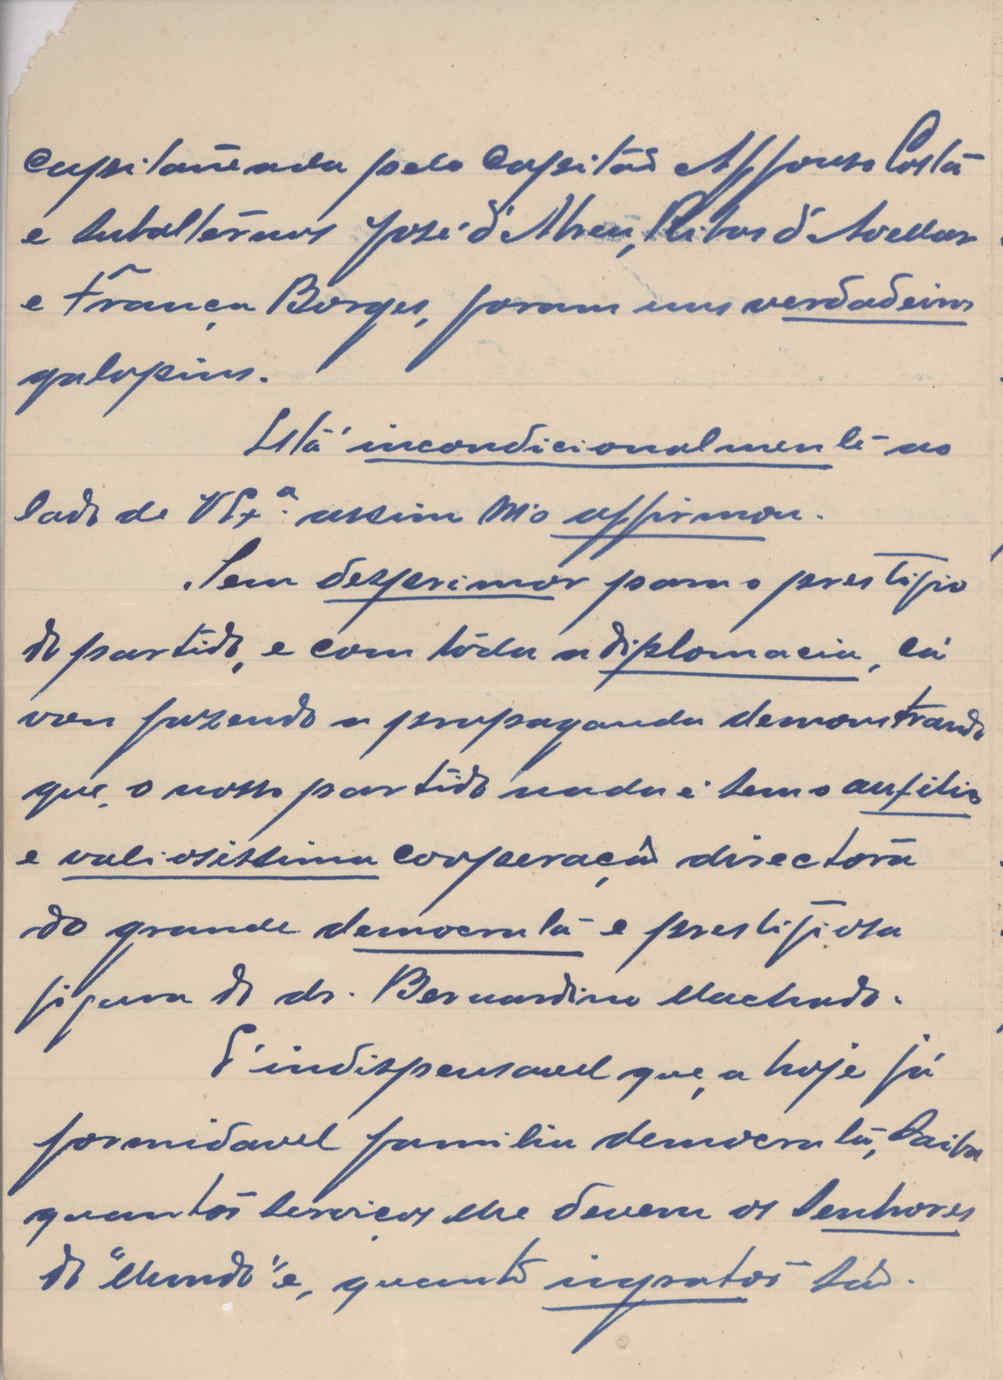 capitaneada pelo Capitão Affonso Costa
e subalternos José d'Abreu, Ribas d'Avellar
e França Borges, foram uns verdadeiros
galopins.
Está incondicionalmente ao
lado de V Ex.ª assim m'o affirmou.
Sem desprimor para o prestigio
do partido, e com tôda a diplomacia, cá
vou fazendo a propaganda demonstrando
que, o nosso partido nada é sem o auxilio
e valiosissima cooperação directora
do grande democrata e prestigiosa
figura do dr. Bernardino Machado.
É indispensavel que, a hoje já
formidavel familia democrata, saiba
quantos serviços lhe devem os senhores
do "Mundo" e, quanto ingratos são.